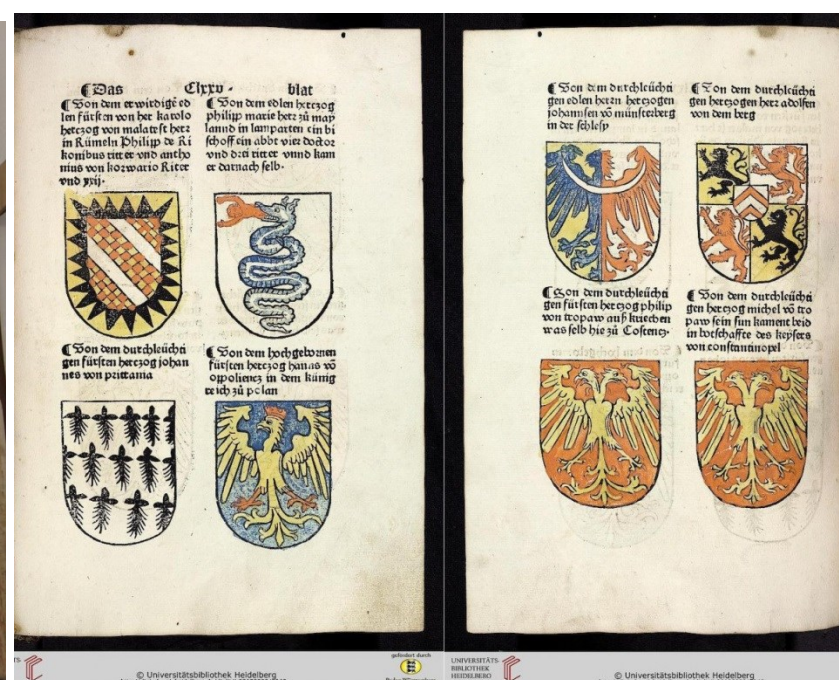 ⸿ Das Clxxv · blat
⸿ Von dem erwirdigē ed
len fürsten von her karolo
hertzog von malatest herr
in Rümeln Philip de Ri
konibus ritter vnd antho
nius von korwario Ritter
vnd xxij.
⸿ Von dem edlen hertzog
philip marie herr zů may
lannd in lamparten ein bi
schoff ein abbt vier doctor
vnd drei ritter vnnd kam
er darnach selb.
⸿ Von dem durchleüchti
gen fürsten hertzog johan
nes von prittania
⸿ Von dem hochgebornen
fürsten hertzog hanns vō
oppolientz in dem künig
reich zů polan
gefördert durch
© Universitätsbibliothek Heidelberg
⸿ Von dem durchleüchti
gen edlen herrn hertzogen
johannsen vō münsterberg
in der schlesy
⸿ Von dem durchleüchti
gen hertzogen herr adolfen
von dem berg
⸿ Von dem durchleüchti
gen fürsten hertzog philip
von tropaw auß kriechen
was selb hie zů Costentz.
⸿ Von dem durchleüchti
gen hertzog michel vō tro
paw sein sun kament beid
in botschaffte des keysers
von constantinopel
UNIVERSITÄTS-
BIBLIOTHEK
HEIDELBERG
© Universitätsbibliothek Heidelberg